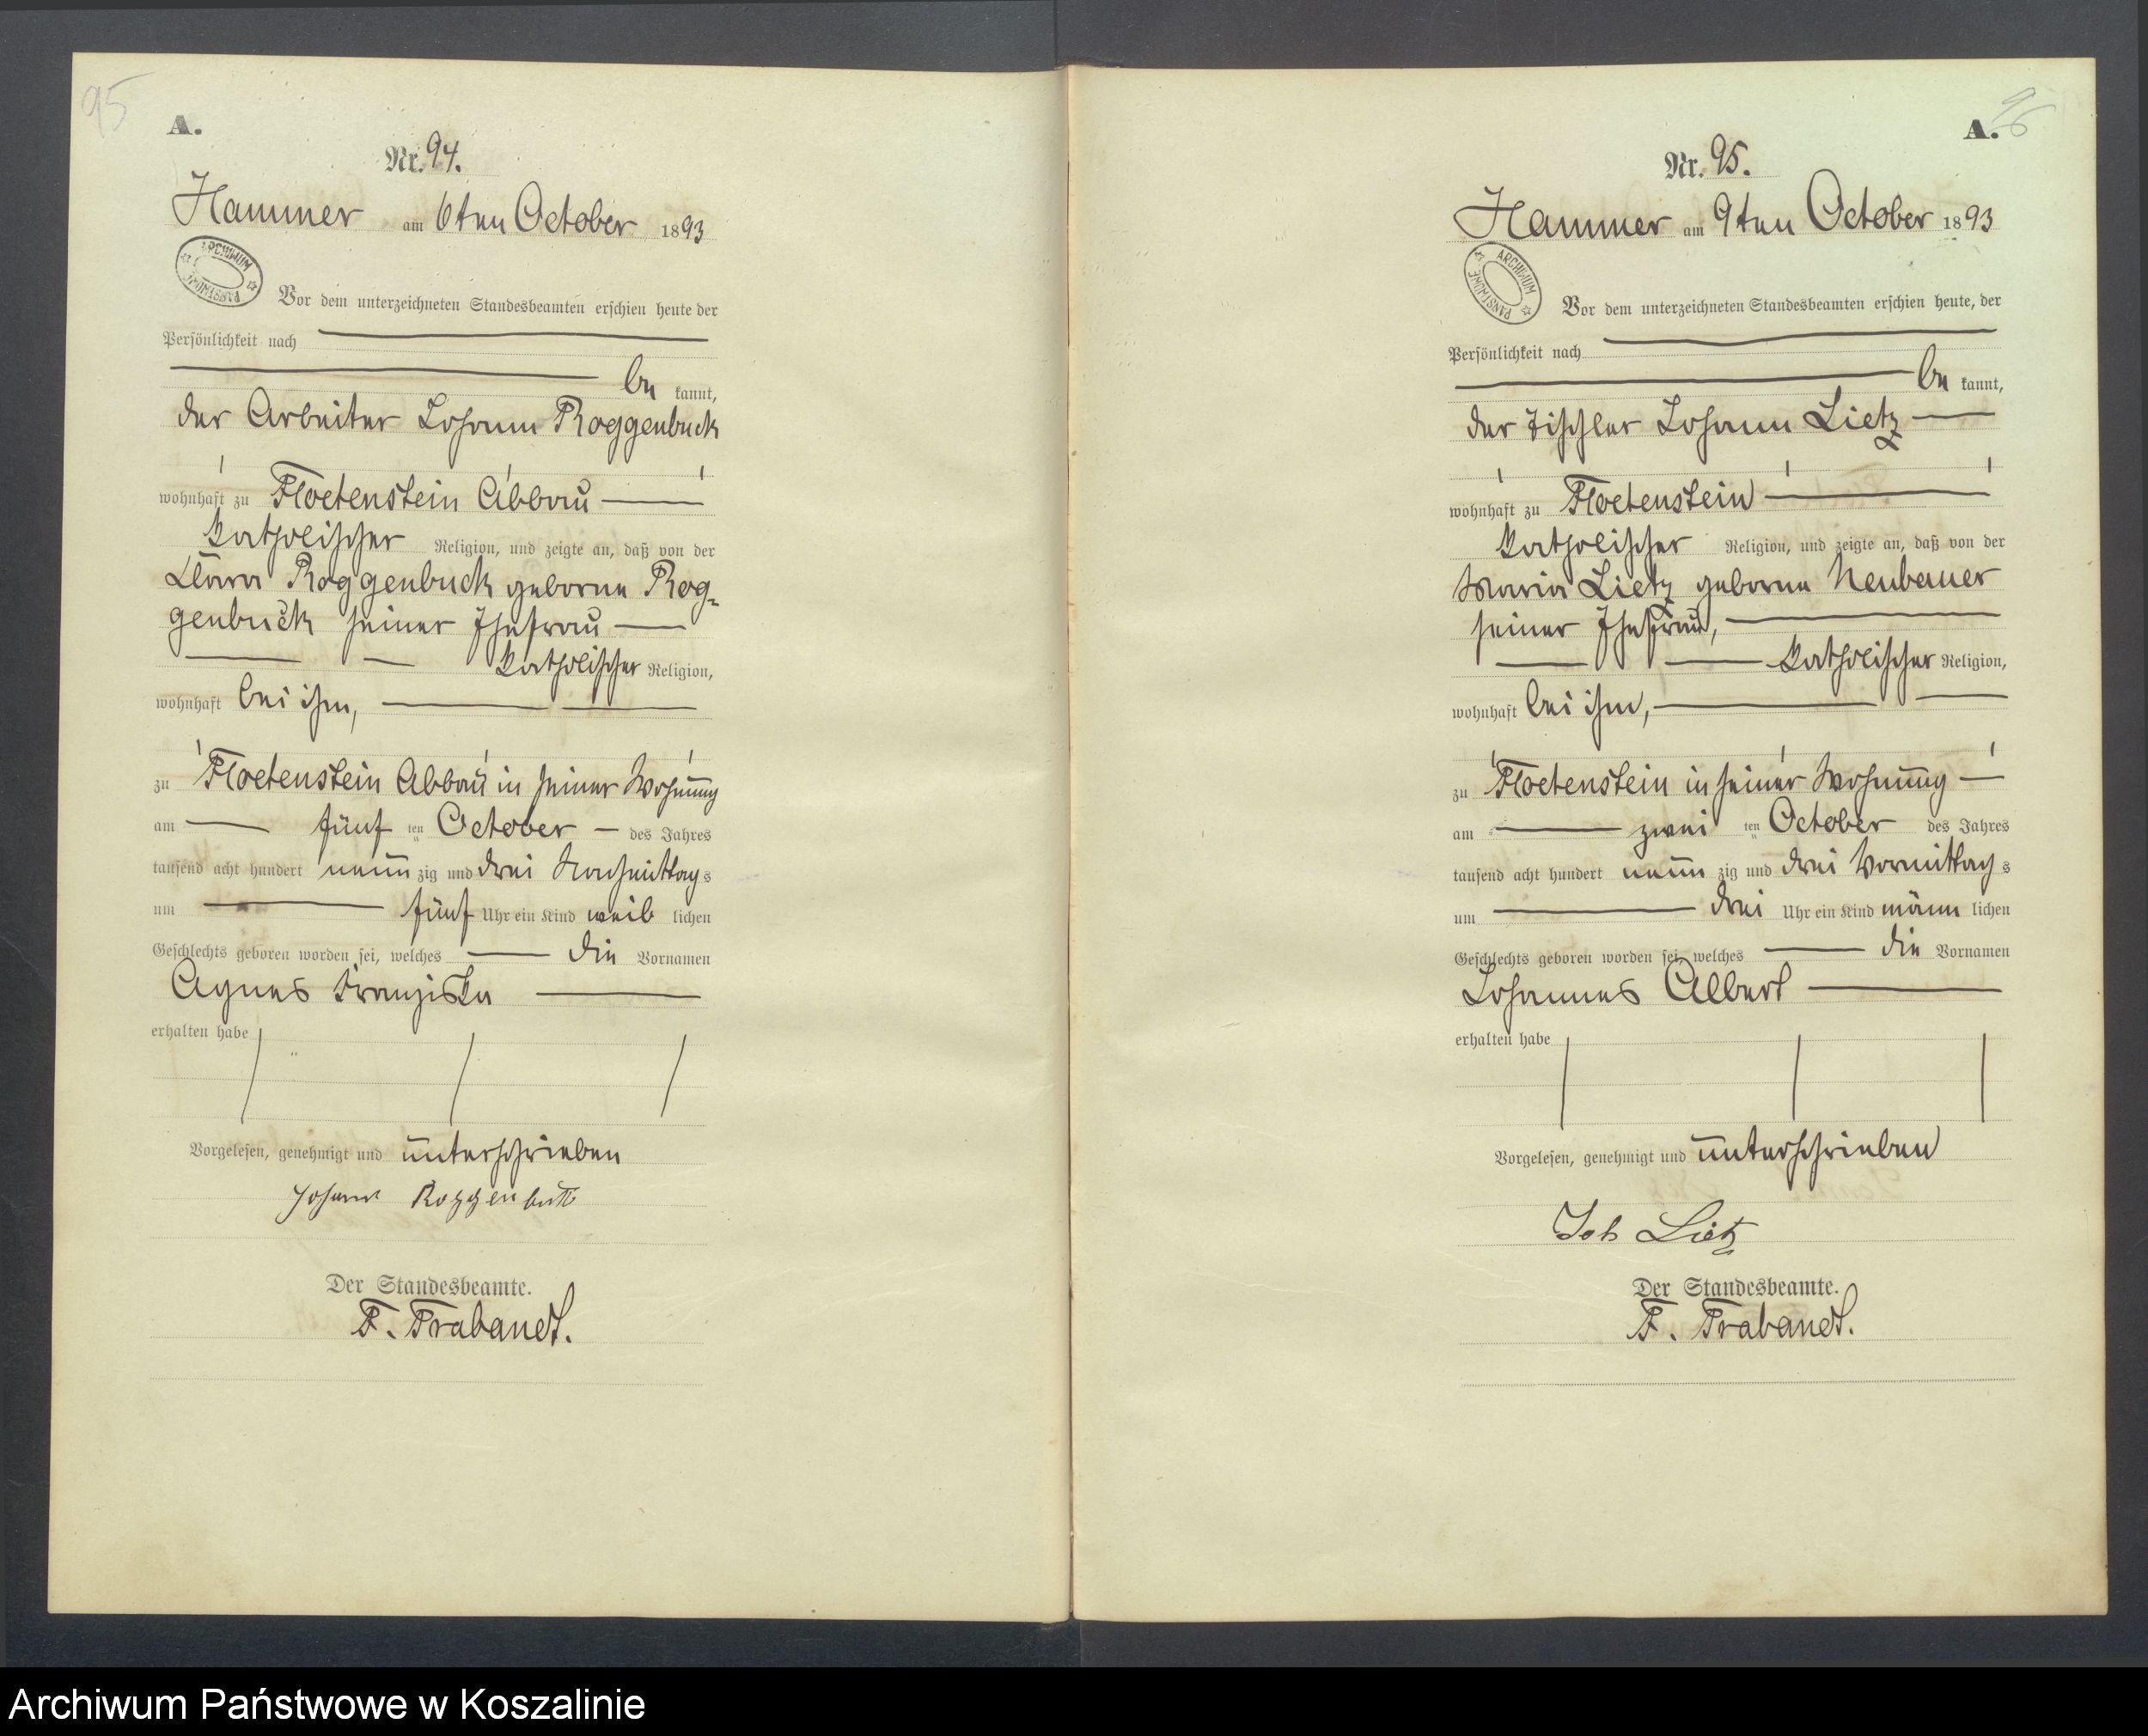 95
A.
Nr. 94.
Hammer am 6ten October 1893
ARCHIWUM PAŃSTWOWE
Vor dem unterzeichneten Standesbeamten erschien heute der
Persönlichkeit nach
be kannt,
der Arbeiter Johann Roggenbuck
wohnhaft zu Floetenstein Abbau
katholischer Religion, und zeigte an, daß von der
Clara Roggenbuck geborne Rog-
genbuck seiner Ehefrau
katholischer Religion,
wohnhaft bei ihm,
zu Floetenstein Abbau in seiner Wohnung
am fünf ten October des Jahres
tausend acht hundert neun zig und drei Nachmittag s
um fünf Uhr ein Kind weib lichen
Geschlechts geboren worden sei, welches die Vornamen
Agnes Franziska
erhalten habe
Vorgelesen, genehmigt und unterschrieben
Johann Roggenbuck
Der Standesbeamte.
F. Trabandt.
96
A.
Nr. 95.
Hammer am 9ten October 1893
ARCHIWUM PAŃSTWOWE
Vor dem unterzeichneten Standesbeamten erschien heute, der
Persönlichkeit nach
be kannt,
der Tischler Johann Lietz
wohnhaft zu Floetenstein
katholischer Religion, und zeigte an, daß von der
Maria Lietz geborne Neubauer
seiner Ehefrau,
katholischer Religion,
wohnhaft bei ihm,
zu Floetenstein in seiner Wohnung
am zwei ten October des Jahres
tausend acht hundert neun zig und drei Vormittag s
um drei Uhr ein Kind männ lichen
Geschlechts geboren worden sei, welches die Vornamen
Johannes Albert
erhalten habe
Vorgelesen, genehmigt und unterschrieben
Joh Lietz
Der Standesbeamte.
F. Trabandt.
Archiwum Państwowe w Koszalinie